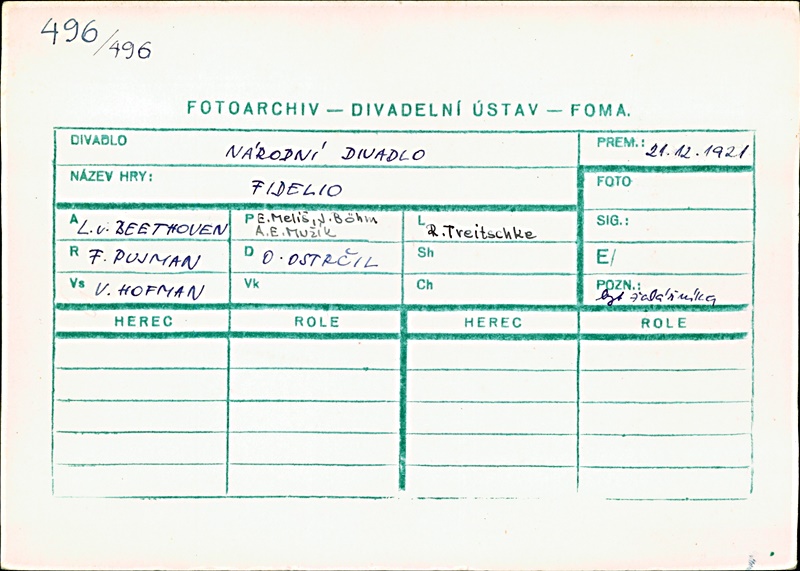 496/496
FOTOARCHIV — DIVADELNÍ ÚSTAV — FOMA.
DIVADLO NÁRODNÍ DIVADLO PREM.: 21.12.1921
NÁZEV HRY: FIDELIO FOTO
A L.v. BEETHOVEN P E. Meliš, J. Böhm L R. Treitschke SIG.:
A.E. Mužík
R F. PUJMAN D O. OSTRČIL Sh E/
Vs V. HOFMAN Vk Ch POZN.:
byt žalářníka
HEREC ROLE HEREC ROLE